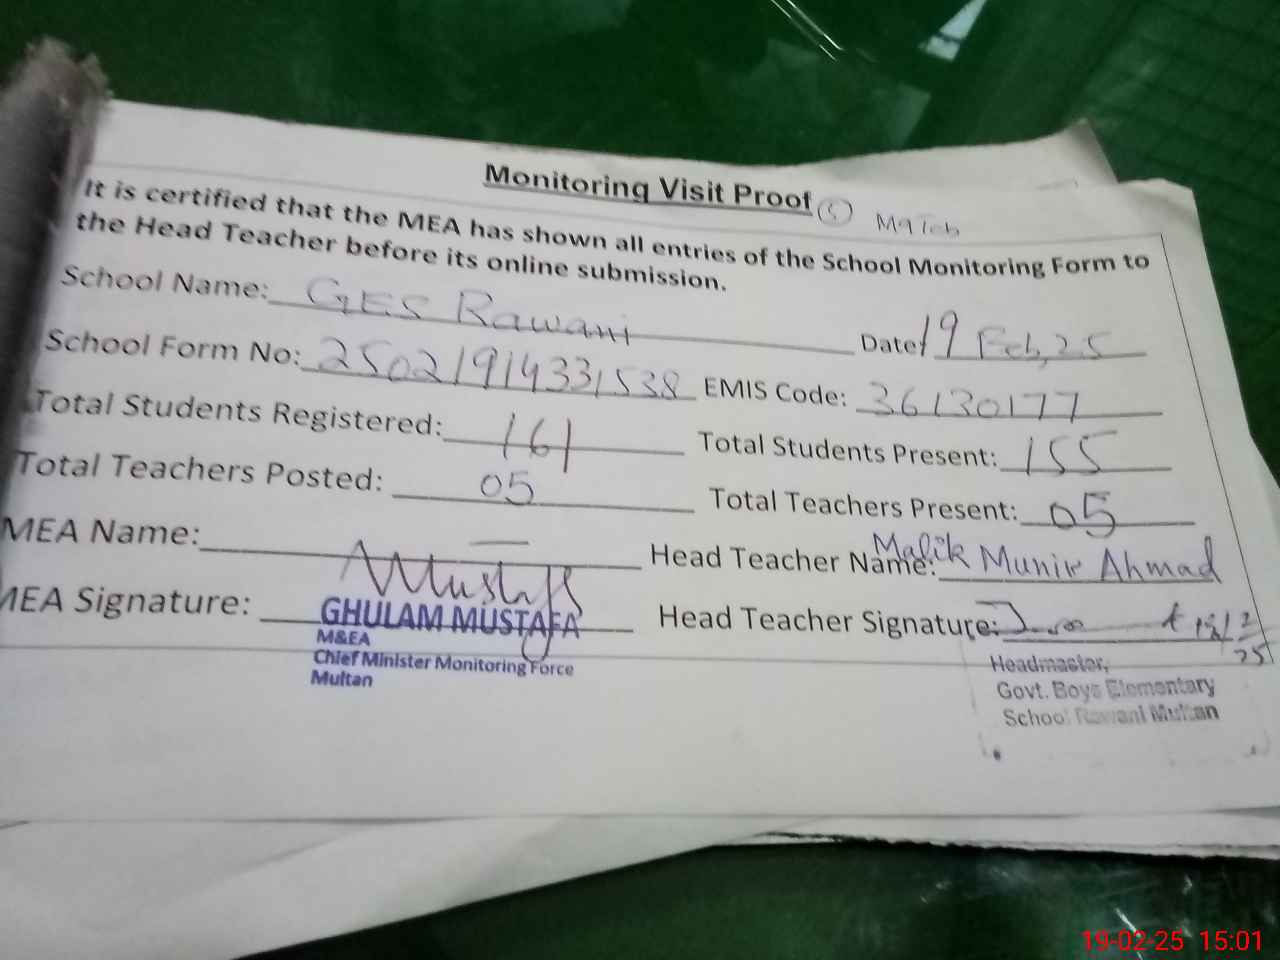 Monitoring Visit Proof (5)
It is certified that the MEA has shown all entries of the School Monitoring Form to
the Head Teacher before its online submission.
School Name: GES Rawani Date: 19 Feb, 25
School Form No: 25021914331538 EMIS Code: 36130177
Total Students Registered: 161 Total Students Present: 155
Total Teachers Posted: 05 Total Teachers Present: 05
MEA Name: — Head Teacher Name: Malik Munir Ahmad
MEA Signature: Head Teacher Signature:
GHULAM MUSTAFA
M&EA
Chief Minister Monitoring Force
Multan
Headmaster,
Govt. Boys Elementary
School Rawani Multan
19-02-25 15:01